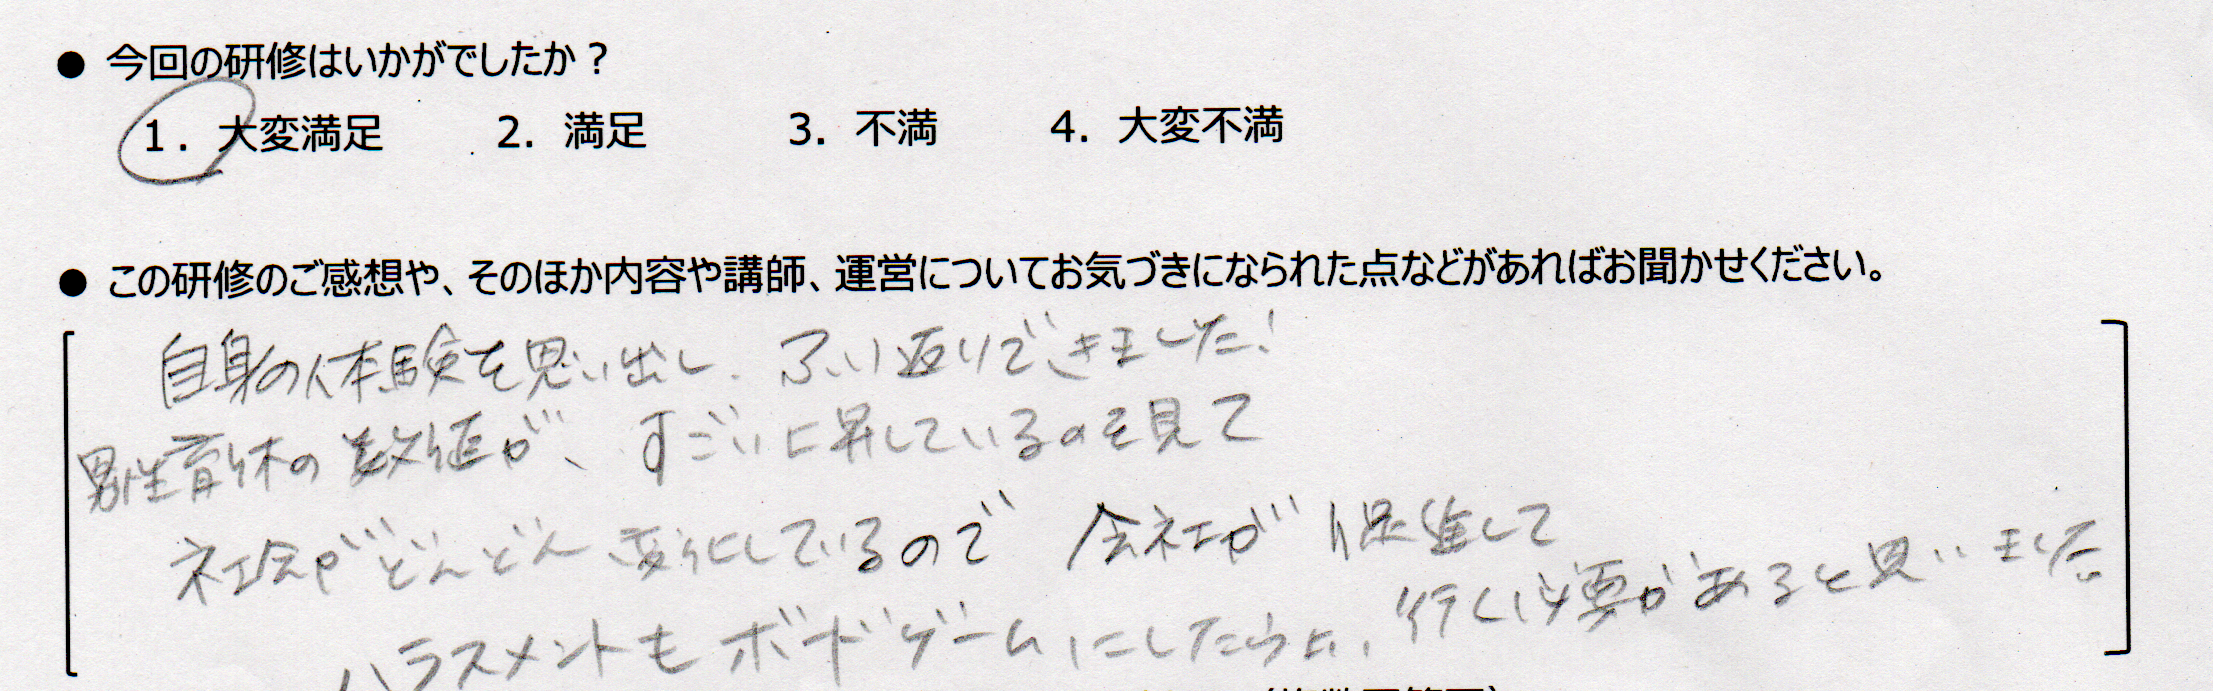 ● 今回の研修はいかがでしたか？
1. 大変満足 2. 満足 3. 不満 4. 大変不満
● この研修のご感想や、そのほか内容や講師、運営についてお気づきになられた点などがあればお聞かせください。
自身の体験を思い出し、ふり返りできました！
男性育休の数値が、すごい上昇しているのを見て
社会がどんどん変化しているので 会社が促進して
行く必要があると思いました。
ハラスメントもボードゲームにしたら